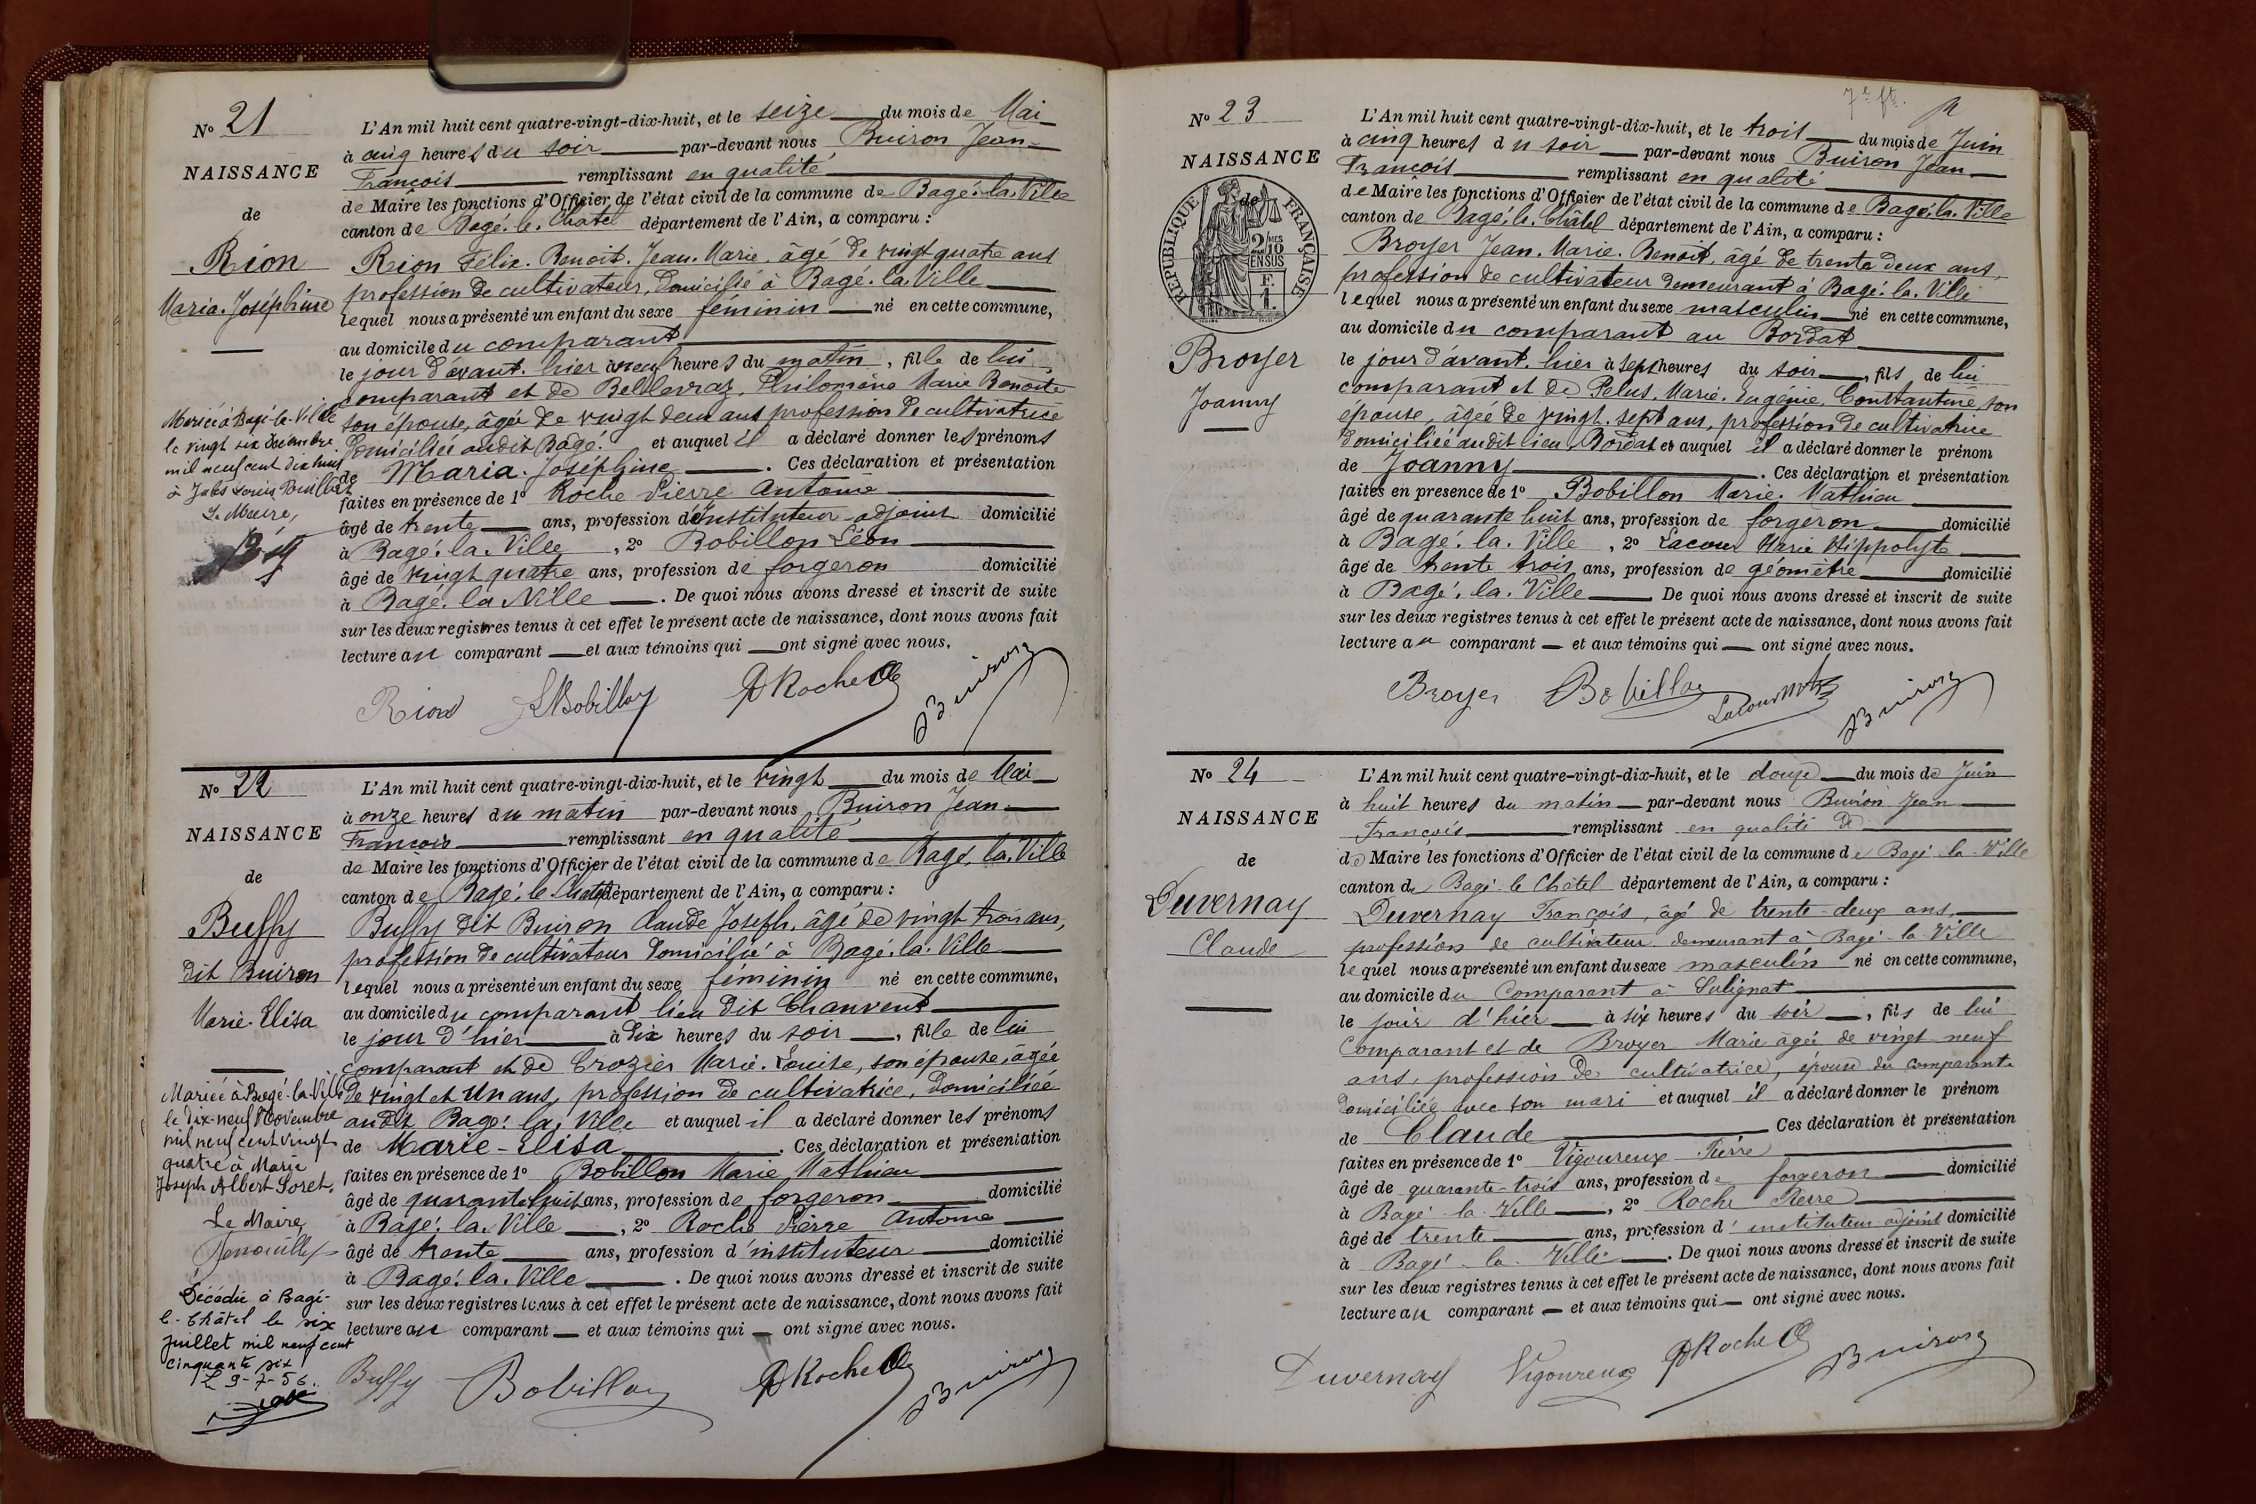 N° 21
NAISSANCE
de
Rion
Maria. Joséphine
Mariée à Bagé-la-Ville
le vingt six Décembre
mil neuf cent dix huit
à Jules Louis
Le Maire,
L'An mil huit cent quatre-vingt-dix-huit, et le seize du mois de Mai
à cinq heures du soir par-devant nous Buiron Jean
François remplissant en qualité
de Maire les fonctions d'Officier de l'état civil de la commune de Bagé. la. Ville
canton de Bagé. le. Chatel département de l'Ain, a comparu :
Rion Félix. Benoit. Jean. Marie, âgé de vingt quatre ans
profession de cultivateur, domicilié à Bagé. la. Ville
lequel nous a présenté un enfant du sexe féminin né en cette commune,
au domicile du comparant
le jour d'avant. hier à neuf heures du matin, fille de lui
comparant et de Bellevraz, Philomène Marie Benoite
son épouse, âgée de vingt deux ans profession de cultivatrice
domiciliée audit Bagé. et auquel il a déclaré donner les prénoms
de Maria. Joséphine. Ces déclaration et présentation
faites en présence de 1° Roche Pierre Antoine
âgé de trente ans, profession d'Instituteur adjoint domicilié
à Bagé. la. Ville, 2° Bobillon Léon
âgé de vingt quatre ans, profession de forgeron domicilié
à Bagé. la Ville. De quoi nous avons dressé et inscrit de suite
sur les deux registres tenus à cet effet le présent acte de naissance, dont nous avons fait
lecture au comparant et aux témoins qui ont signé avec nous.
Rion LBobillon PRoche Buiron
N° 22
NAISSANCE
de
Buffy
dit Buiron
Marie. Elisa
Mariée à Bagé-la-Ville
le dix-neuf Novembre
mil neuf cent vingt
quatre à Marie
Joseph Albert Loret.
Le Maire,
Décédée à Bagé-
le-Châtel le six
Juillet mil neuf cent
cinquante six
Le 9-7-56.
L'An mil huit cent quatre-vingt-dix-huit, et le vingt du mois de Mai
à onze heures du matin par-devant nous Buiron Jean
François remplissant en qualité
de Maire les fonctions d'Officier de l'état civil de la commune de Bagé. la. Ville
canton de Bagé. le Chatel département de l'Ain, a comparu :
Buffy dit Buiron Claude Joseph, âgé de vingt trois ans,
profession de cultivateur domicilié à Bagé. la. Ville
lequel nous a présenté un enfant du sexe féminin né en cette commune,
au domicile du comparant lieu dit Chanvent
le jour d'hier à Six heures du soir, fille de lui
comparant et de Crozier Marie. Louise, son épouse, âgée
de vingt et Un ans, profession de cultivatrice, domiciliée
audit Bagé. la. Ville et auquel il a déclaré donner les prénoms
de Marie-Elisa. Ces déclaration et présentation
faites en présence de 1° Bobillon Marie Mathieu
âgé de quarante huit ans, profession de forgeron domicilié
à Bagé. la. Ville, 2° Roche Pierre Antoine
âgé de trente ans, profession d'instituteur domicilié
à Bagé. la. Ville. De quoi nous avons dressé et inscrit de suite
sur les deux registres tenus à cet effet le présent acte de naissance, dont nous avons fait
lecture au comparant et aux témoins qui ont signé avec nous.
Buffy Bobillon PRoche Buiron
N° 23
NAISSANCE
de
RÉPUBLIQUE FRANÇAISE
2/10 EN SUS
Broyer
Joanny
L'An mil huit cent quatre-vingt-dix-huit, et le trois du mois de Juin
à cinq heures du soir par-devant nous Buiron Jean
François remplissant en qualité
de Maire les fonctions d'Officier de l'état civil de la commune de Bagé. la. Ville
canton de Bagé. le. Châtel département de l'Ain, a comparu :
Broyer Jean. Marie. Benoit, âgé de trente deux ans,
profession de cultivateur demeurant à Bagé. la. Ville
lequel nous a présenté un enfant du sexe masculin né en cette commune,
au domicile du comparant au Bordat
le jour d'avant. hier à sept heures du soir, fils de lui
comparant et de Pelus. Marie. Eugénie. Constantine, son
épouse, âgée de vingt. sept ans, profession de cultivatrice
domiciliée audit lieu Bordat et auquel il a déclaré donner le prénom
de Joanny. Ces déclaration et présentation
faites en presence de 1° Bobillon Marie. Mathieu
âgé de quarante huit ans, profession de forgeron domicilié
à Bagé. la. Ville, 2° Lacour Marie Hippolyte
âgé de trente trois ans, profession de géomètre domicilié
à Bagé. la. Ville De quoi nous avons dressé et inscrit de suite
sur les deux registres tenus à cet effet le présent acte de naissance, dont nous avons fait
lecture au comparant et aux témoins qui ont signé avec nous.
Broyer Bobillon Lacour Buiron
N° 24
NAISSANCE
de
Duvernay
Claude
L'An mil huit cent quatre-vingt-dix-huit, et le douze du mois de Juin
à huit heures du matin par-devant nous Buiron Jean
François remplissant en qualité de
de Maire les fonctions d'Officier de l'état civil de la commune de Bagé-la-Ville
canton de Bagé-le Châtel département de l'Ain, a comparu :
Duvernay François, âgé de trente-deux ans,
profession de cultivateur demeurant à Bagé-la-Ville
lequel nous a présenté un enfant du sexe masculin né en cette commune,
au domicile du Comparant à Salignat
le jour d'hier à six heures du soir, fils de lui
Comparant et de Broyer Marie âgée de vingt neuf
ans, profession de cultivatrice, épouse du comparant
domiciliée avec son mari et auquel il a déclaré donner le prénom
de Claude Ces déclaration et présentation
faites en présence de 1° Vigoureux Pierre
âgé de quarante-trois ans, profession de forgeron domicilié
à Bagé-la-Ville, 2° Roche Pierre
âgé de trente ans, profession d'instituteur adjoint domicilié
à Bagé-la-Ville. De quoi nous avons dressé et inscrit de suite
sur les deux registres tenus à cet effet le présent acte de naissance, dont nous avons fait
lecture au comparant et aux témoins qui ont signé avec nous.
Duvernay Vigoureux PRoche Buiron